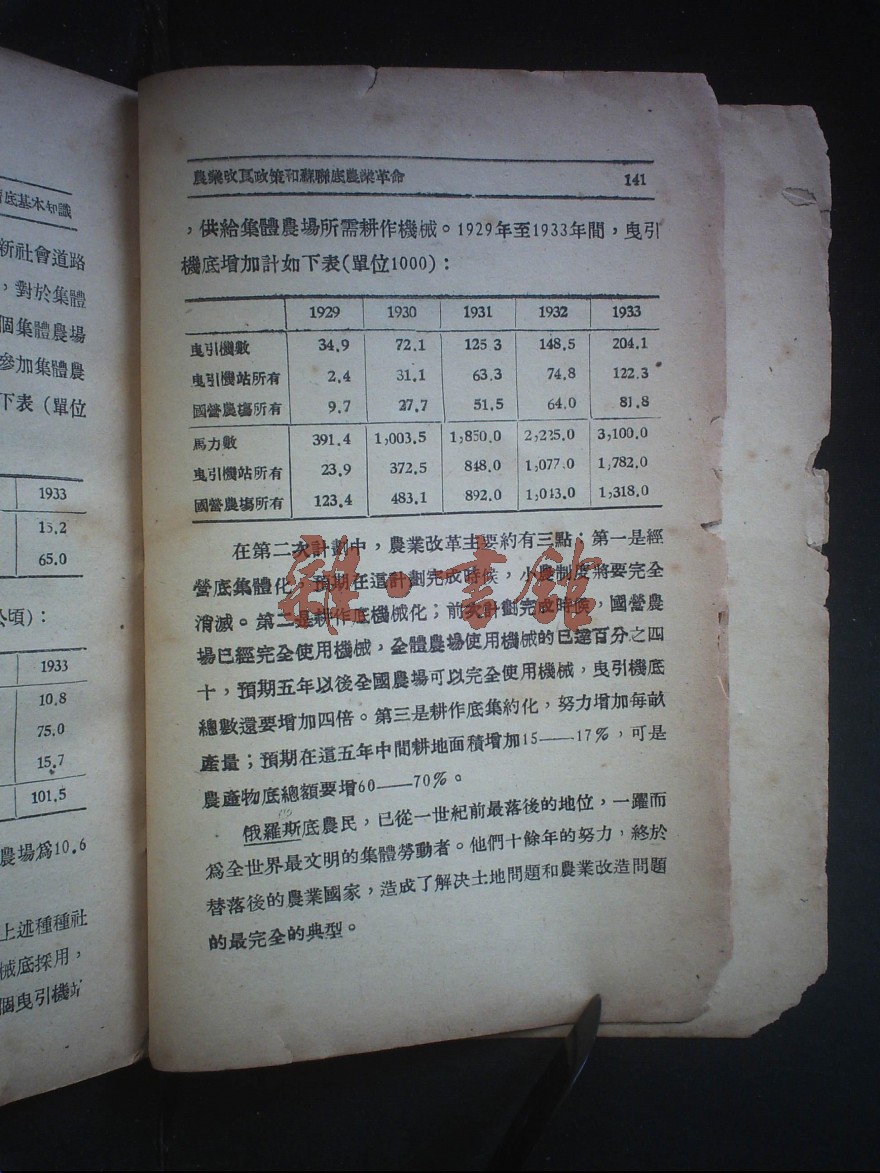 濟底基本知識
新社會道路
，對於集體
個集體農場
參加集體農
下表（單位
1933
15.2
65.0
公頃）：
1933
10.8
75.0
15.7
101.5
農場爲10.6
上述種種社
械底採用，
個曳引機站
農業改良政策和蘇聯底農業革命 141
，供給集體農場所需耕作機械。1929年至1933年間，曳引
機底增加計如下表(單位1000)：
1929 1930 1931 1932 1933
曳引機數 34.9 72.1 125 3 148.5 204.1
曳引機站所有 2.4 31.1 63.3 74.8 122.3
國營農場所有 9.7 27.7 51.5 64.0 81.8
馬力數 391.4 1,003.5 1,850.0 2,225.0 3,100.0
曳引機站所有 23.9 372.5 848.0 1,077.0 1,782.0
國營農場所有 123.4 483.1 892.0 1,043.0 1,318.0
在第二次計劃中，農業改革主要約有三點；第一是經
營底集體化，預期在這計劃完成時候，小農制度將要完全
消滅。第二是耕作底機械化；前次計劃完成時候，國營農
場已經完全使用機械，全體農場使用機械的已達百分之四
十，預期五年以後全國農場可以完全使用機械，曳引機底
總數還要增加四倍。第三是耕作底集約化，努力增加每畝
產量；預期在這五年中間耕地面積增加15——17%，可是
農產物底總額要增60——70%。
俄羅斯底農民，已從一世紀前最落後的地位，一躍而
爲全世界最文明的集體勞動者。他們十餘年的努力，終於
替落後的農業國家，造成了解決土地問題和農業改造問題
的最完全的典型。
雜·書館